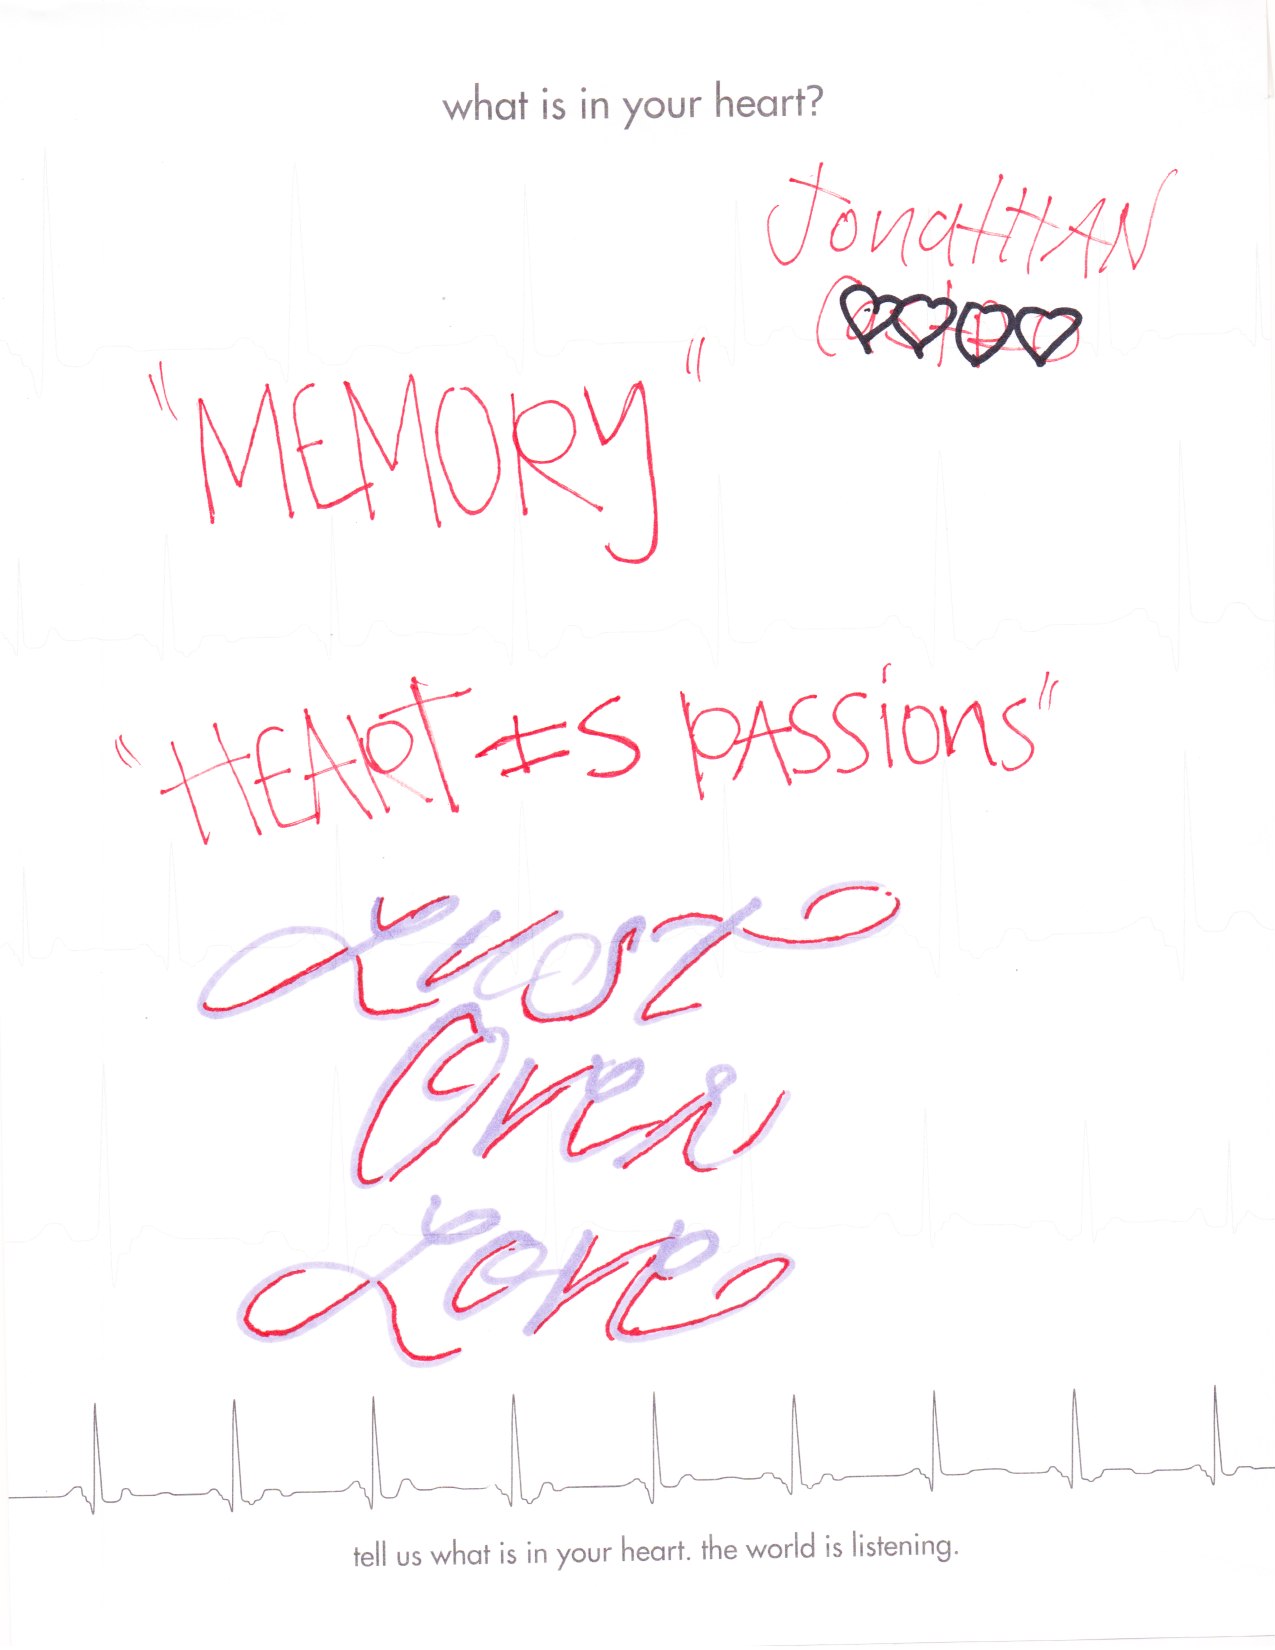 what is in your heart?
JonatHAN
"MEMORY"
"HEART IS PASSIONS"
Lust
Over
Love
tell us what is in your heart. the world is listening.